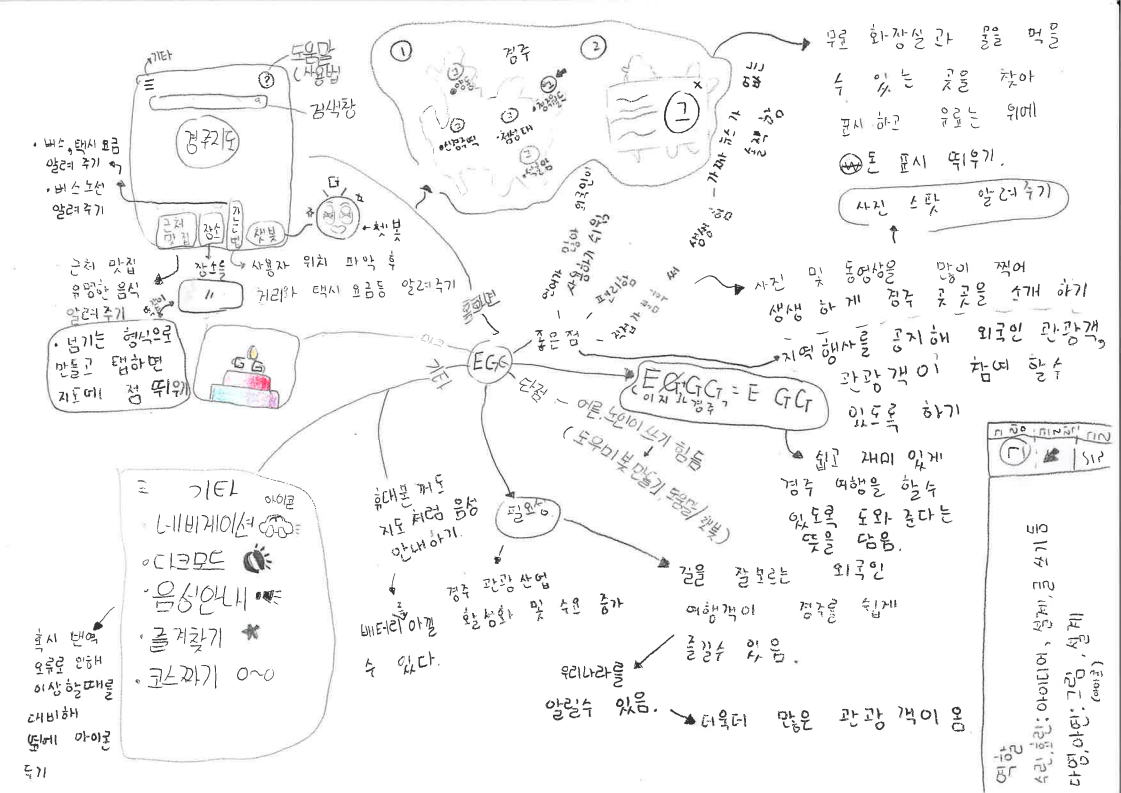 기타
도움말
(사용법
검색창
경주지도
• 버스, 택시 요금
알려 주기
• 버스 노선
알려주기
근처
맛집
장소
챗봇
← 챗봇
근처 맛집
유명한 음식
알려주기
장소들
사용자 위치 파악 후
거리와 택시 요금등 알려주기
• 넘기는 형식으로
만들고 탭하면
지도에 점 띄우기
GG
① 경주 ②
신경주역
첨성대
석굴암
무료 화장실과 물을 먹을
수 있는 곳을 찾아
표시하고 유료는 위에
₩돈 표시 띄우기.
사진 스팟 알려주기
사진 및 동영상을 많이 찍어
생생 하게 경주 곳곳을 소개 하기
지역 행사를 공지해 외국인 관광객,
관광객이 참여 할수
있도록 하기
EGG
좋은점
외국인이
사용하기 쉬움
편리함
직접 가
기타
단점 - 어른, 노인이 쓰기 힘듦
(도우미 봇 만들기, 도움말/챗봇)
EG,GG, = E GG
(이지 경주
쉽고 재미 있게
경주 여행을 할수
있도록 도와 준다는
뜻을 담음.
필요성
경주 관광 산업
활성화 및 수요 증가
길을 잘 모르는 외국인
여행객이 경주를 쉽게
즐길수 있음.
우리나라를
알릴수 있음.
더욱더 많은 관광 객이 옴
휴대폰 꺼도
지도 처럼 음성
안내하기.
배터리를 아낄
수 있다.
기타
아이콘
네비게이션
• 다크모드
• 음성안내
• 즐겨찾기
• 코스짜기
혹시 번역
오류로 인해
이상할때를
대비해
옆에 아이콘
두기
역할
수린,효린: 아이디어, 설계, 글 쓰기 등
다영,아연: 그림, 설계